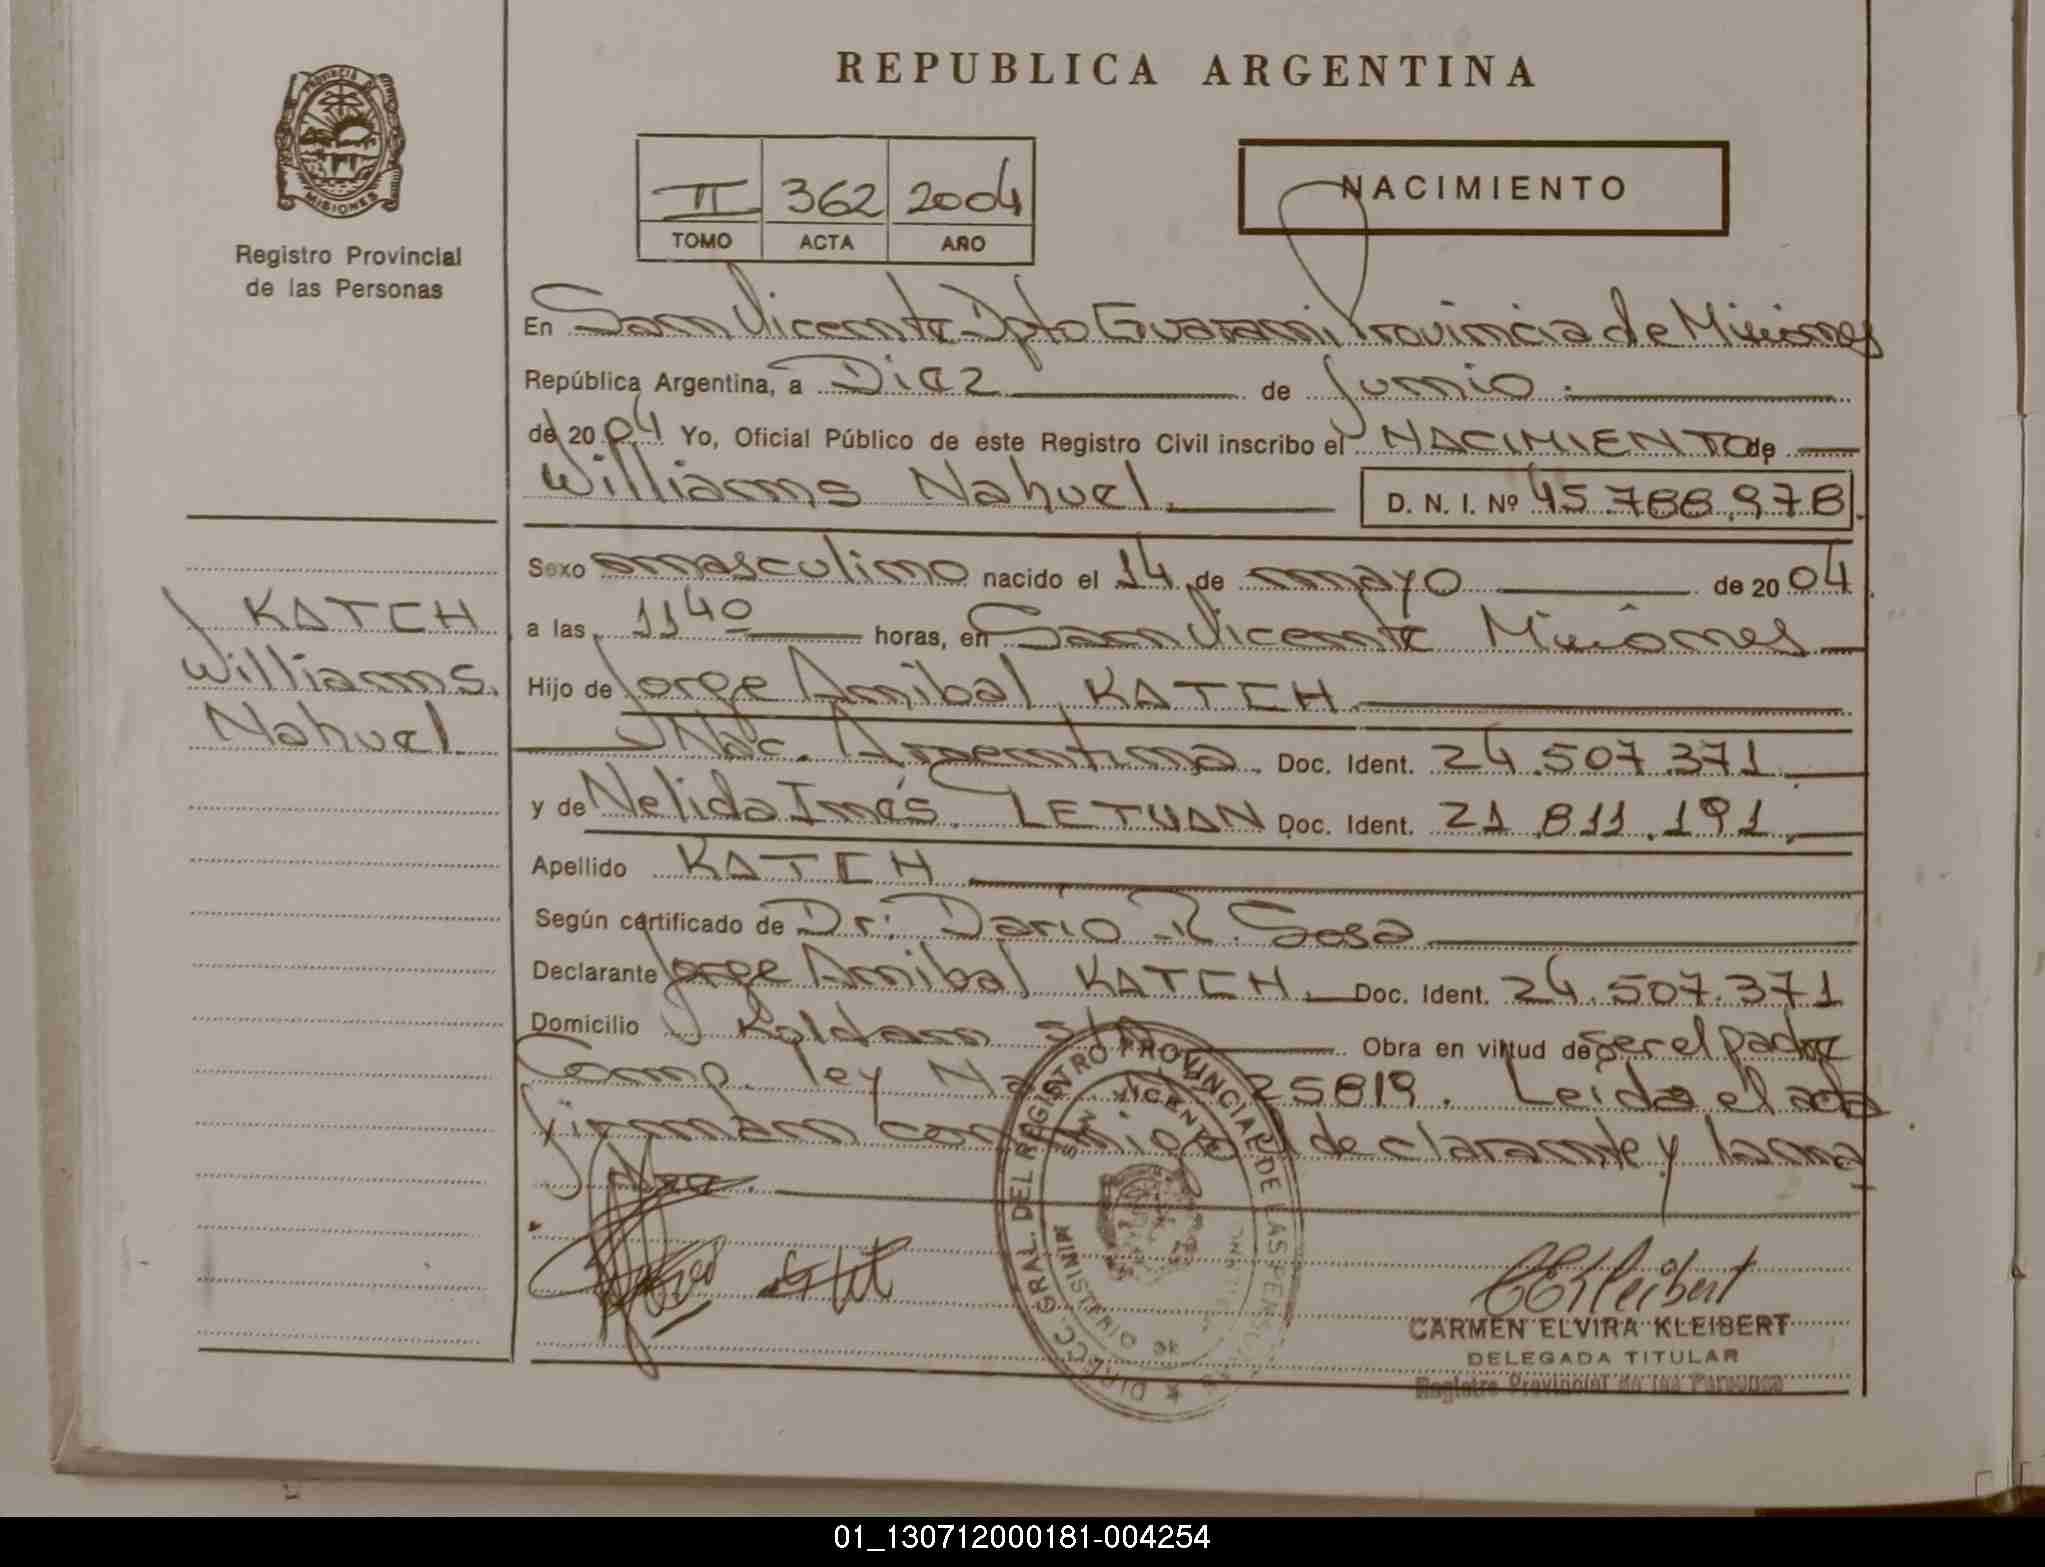 REPUBLICA ARGENTINA
PROVINCIA DE
MISIONES
Registro Provincial
de las Personas
II 362 2004
TOMO ACTA AÑO
NACIMIENTO
En San Vicente Dpto Guarani Provincia de Misiones
República Argentina, a Diez de Junio.
de 2004 Yo, Oficial Público de este Registro Civil inscribo el NACIMIENTO de
Williams Nahuel. D. N. I. Nº 45.788.978.
Sexo masculino nacido el 14 de mayo de 2004
a las 11 40 horas, en San Vicente Misiones
Hijo de Jorge Anibal KATCH
Nac. Argentina. Doc. Ident. 24.507.371
y de Nelida Inés. LETUAN Doc. Ident. 21.811.191.
Apellido KATCH
Según certificado de Dr: Dario R. Sosa
Declarante Jorge Anibal KATCH. Doc. Ident. 24.507.371
Domicilio Roldan s/n Obra en virtud de ser el padre
Comp. ley 25819. Leida el acta
firman conmigo el declarante y la ma
dre.
KATCH
Williams
Nahuel
DIRECC. GRAL. DEL REGISTRO PROVINCIAL DE LAS PERSONAS
SAN VICENTE
CEKleibert
CARMEN ELVIRA KLEIBERT
DELEGADA TITULAR
Registro Provincial de las Personas
01_130712000181-004254